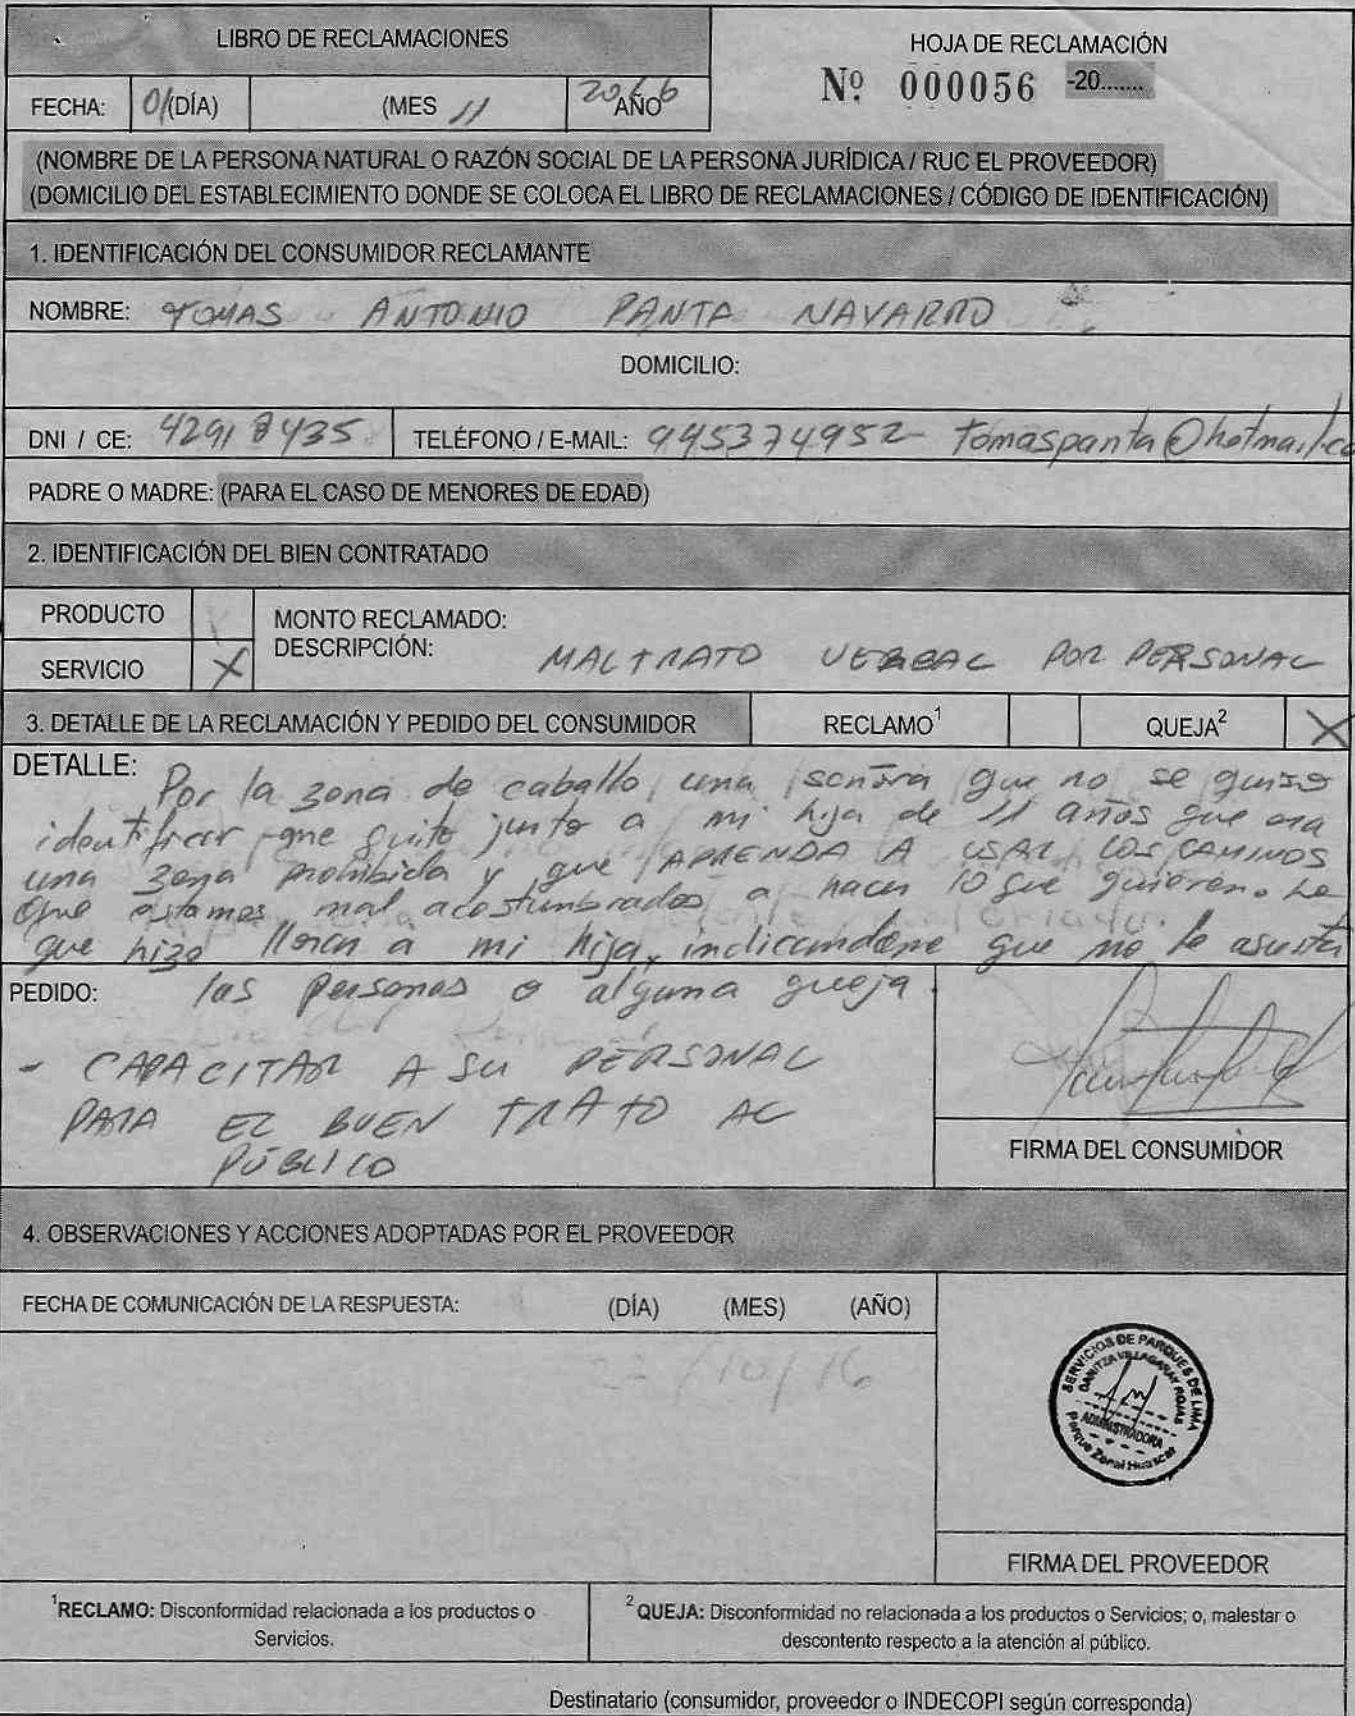 LIBRO DE RECLAMACIONES
HOJA DE RECLAMACIÓN
Nº 000056 -20.......
FECHA: 01 (DÍA) (MES 11 2016 AÑO
(NOMBRE DE LA PERSONA NATURAL O RAZÓN SOCIAL DE LA PERSONA JURÍDICA / RUC EL PROVEEDOR)
(DOMICILIO DEL ESTABLECIMIENTO DONDE SE COLOCA EL LIBRO DE RECLAMACIONES / CÓDIGO DE IDENTIFICACIÓN)
1. IDENTIFICACIÓN DEL CONSUMIDOR RECLAMANTE
NOMBRE: TOMAS ANTONIO PANTA NAVARRO
DOMICILIO:
DNI / CE: 42918435 TELÉFONO / E-MAIL: 945374952 tomaspanta@hotmail.co
PADRE O MADRE: (PARA EL CASO DE MENORES DE EDAD)
2. IDENTIFICACIÓN DEL BIEN CONTRATADO
PRODUCTO
MONTO RECLAMADO:
SERVICIO X DESCRIPCIÓN: MALTRATO VERBAL POR PERSONAL
3. DETALLE DE LA RECLAMACIÓN Y PEDIDO DEL CONSUMIDOR RECLAMO1 QUEJA2 X
DETALLE: Por la zona de caballo, una señora que no se quiso
identificar me grito junto a mi hija de 11 años que era
una zona prohibida y que APRENDA A USAR LOS CAMINOS
Que estamos mal acostumbrados a hacer lo que quieren. Lo
que hizo llorar a mi hija, indicandome que no le asusta
las personas o alguna queja.
PEDIDO:
- CAPACITAR A SU PERSONAL
PARA EL BUEN TRATO AL
PÚBLICO
FIRMA DEL CONSUMIDOR
4. OBSERVACIONES Y ACCIONES ADOPTADAS POR EL PROVEEDOR
FECHA DE COMUNICACIÓN DE LA RESPUESTA: (DÍA) (MES) (AÑO)
/10/16
SERVICIOS DE PARQUES DE LIMA
DANITZA VILLAGARAY ROJAS
ADMINISTRADORA
Parque Zonal Huascar
FIRMA DEL PROVEEDOR
1RECLAMO: Disconformidad relacionada a los productos o
Servicios.
2 QUEJA: Disconformidad no relacionada a los productos o Servicios; o, malestar o
descontento respecto a la atención al público.
Destinatario (consumidor, proveedor o INDECOPI según corresponda)